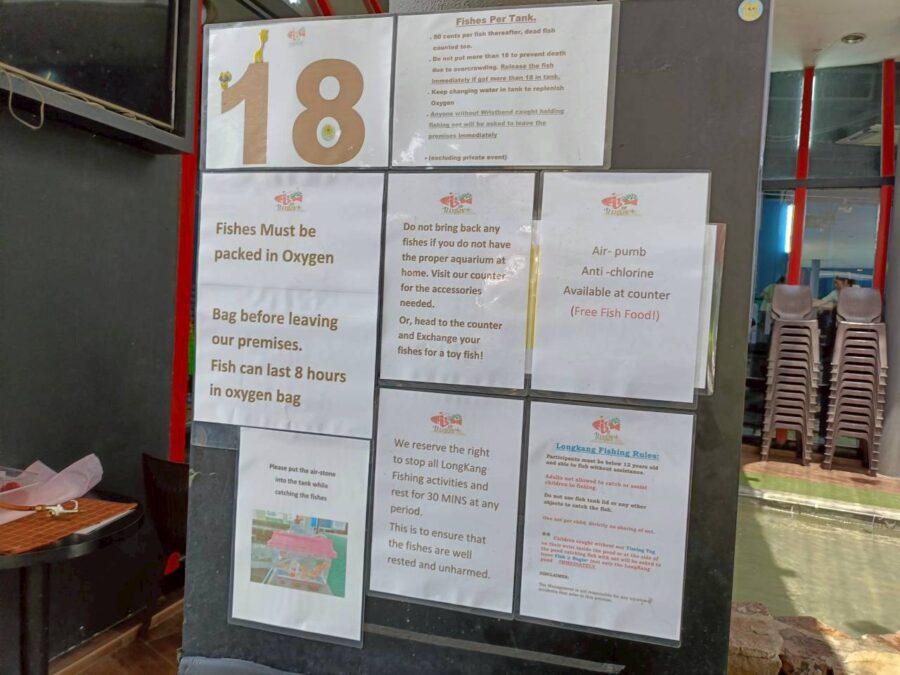 18
Fishes Per Tank.
. 50 cents per fish thereafter, dead fish
counted too.
. Do not put more than 18 to prevent death
due to overcrowding. Release the fish
immediately if got more than 18 in tank.
. Keep changing water in tank to replenish
Oxygen
. Anyone without Wristband caught holding
fishing net will be asked to leave the
premises immediately
. (excluding private event)
Fishes Must be
packed in Oxygen
Bag before leaving
our premises.
Fish can last 8 hours
in oxygen bag
Do not bring back any
fishes if you do not have
the proper aquarium at
home. Visit our counter
for the accessories
needed.
Or, head to the counter
and Exchange your
fishes for a toy fish!
Air- pumb
Anti -chlorine
Available at counter
(Free Fish Food!)
Please put the air-stone
into the tank while
catching the fishes
We reserve the right
to stop all LongKang
Fishing activities and
rest for 30 MINS at any
period.
This is to ensure that
the fishes are well
rested and unharmed.
Longkang Fishing Rules:
Participants must be below 12 years old
and able to fish without assistance.
Adults not allowed to catch or assist
children in fishing.
Do not use fish tank lid or any other
objects to catch the fish.
One net per child, strictly no sharing of net.
** Children caught without our Timing Tag
on their wrist inside the pond or at the side of
the pond catching fish with net will be asked to
leave Fish @ Bugis' that only the LongKang
pond IMMEDIATELY
DISCLAIMER:
The Management is not responsible for any